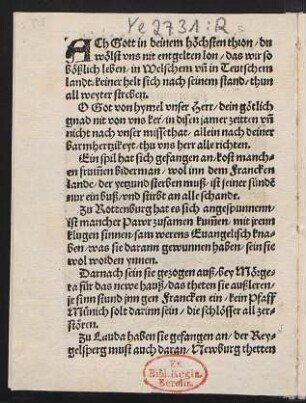 Ye 2731 : R
ACh Gott in deinem höchsten thron / du
wölst vns nit entgelten lon / das wir so
bößlich leben / in Welschem vñ in Teutschem
landt. keiner helt sich nach seinem stand / thun
all weyter streben.
O Got von hymel vnser Herr / dein götlich
gnad nit von vns ker / in disen jamer zeitten vñ
nicht nach vnser missethat / allein nach deiner
barmhertzikeyt / thu vns herr alle richten.
Ein spil hat sich gefangen an / kost manch-
en frummen biderman / wol inn dem Francken
lande / der yezund sterben muß / ist seiner sünde
nur ein buß / vnd stirbt an alle schande.
Zu Rottenburg hat es sich angespunnenn /
ist mancher Pawr zusamen kumen / mit jrenn
klugen sinnen / sam werens Euangelisch kna-
ben / was sie darann gewunnen haben / sein sie
wol worden ynnen.
Darnach sein sie gezogen auß / bey Mörge-
ta für das newe hauß / das theten sie außleren-
je sinn stund jnn gen Francken ein / kein Pfaff
Münich solt darinn sein / die schlösser all zer-
stören.
Zu Lauda haben sie gefangen an / der Rey-
gelsperg must auch daran / Newburg thetten
Ex
Bibl. Regia
Berolin.